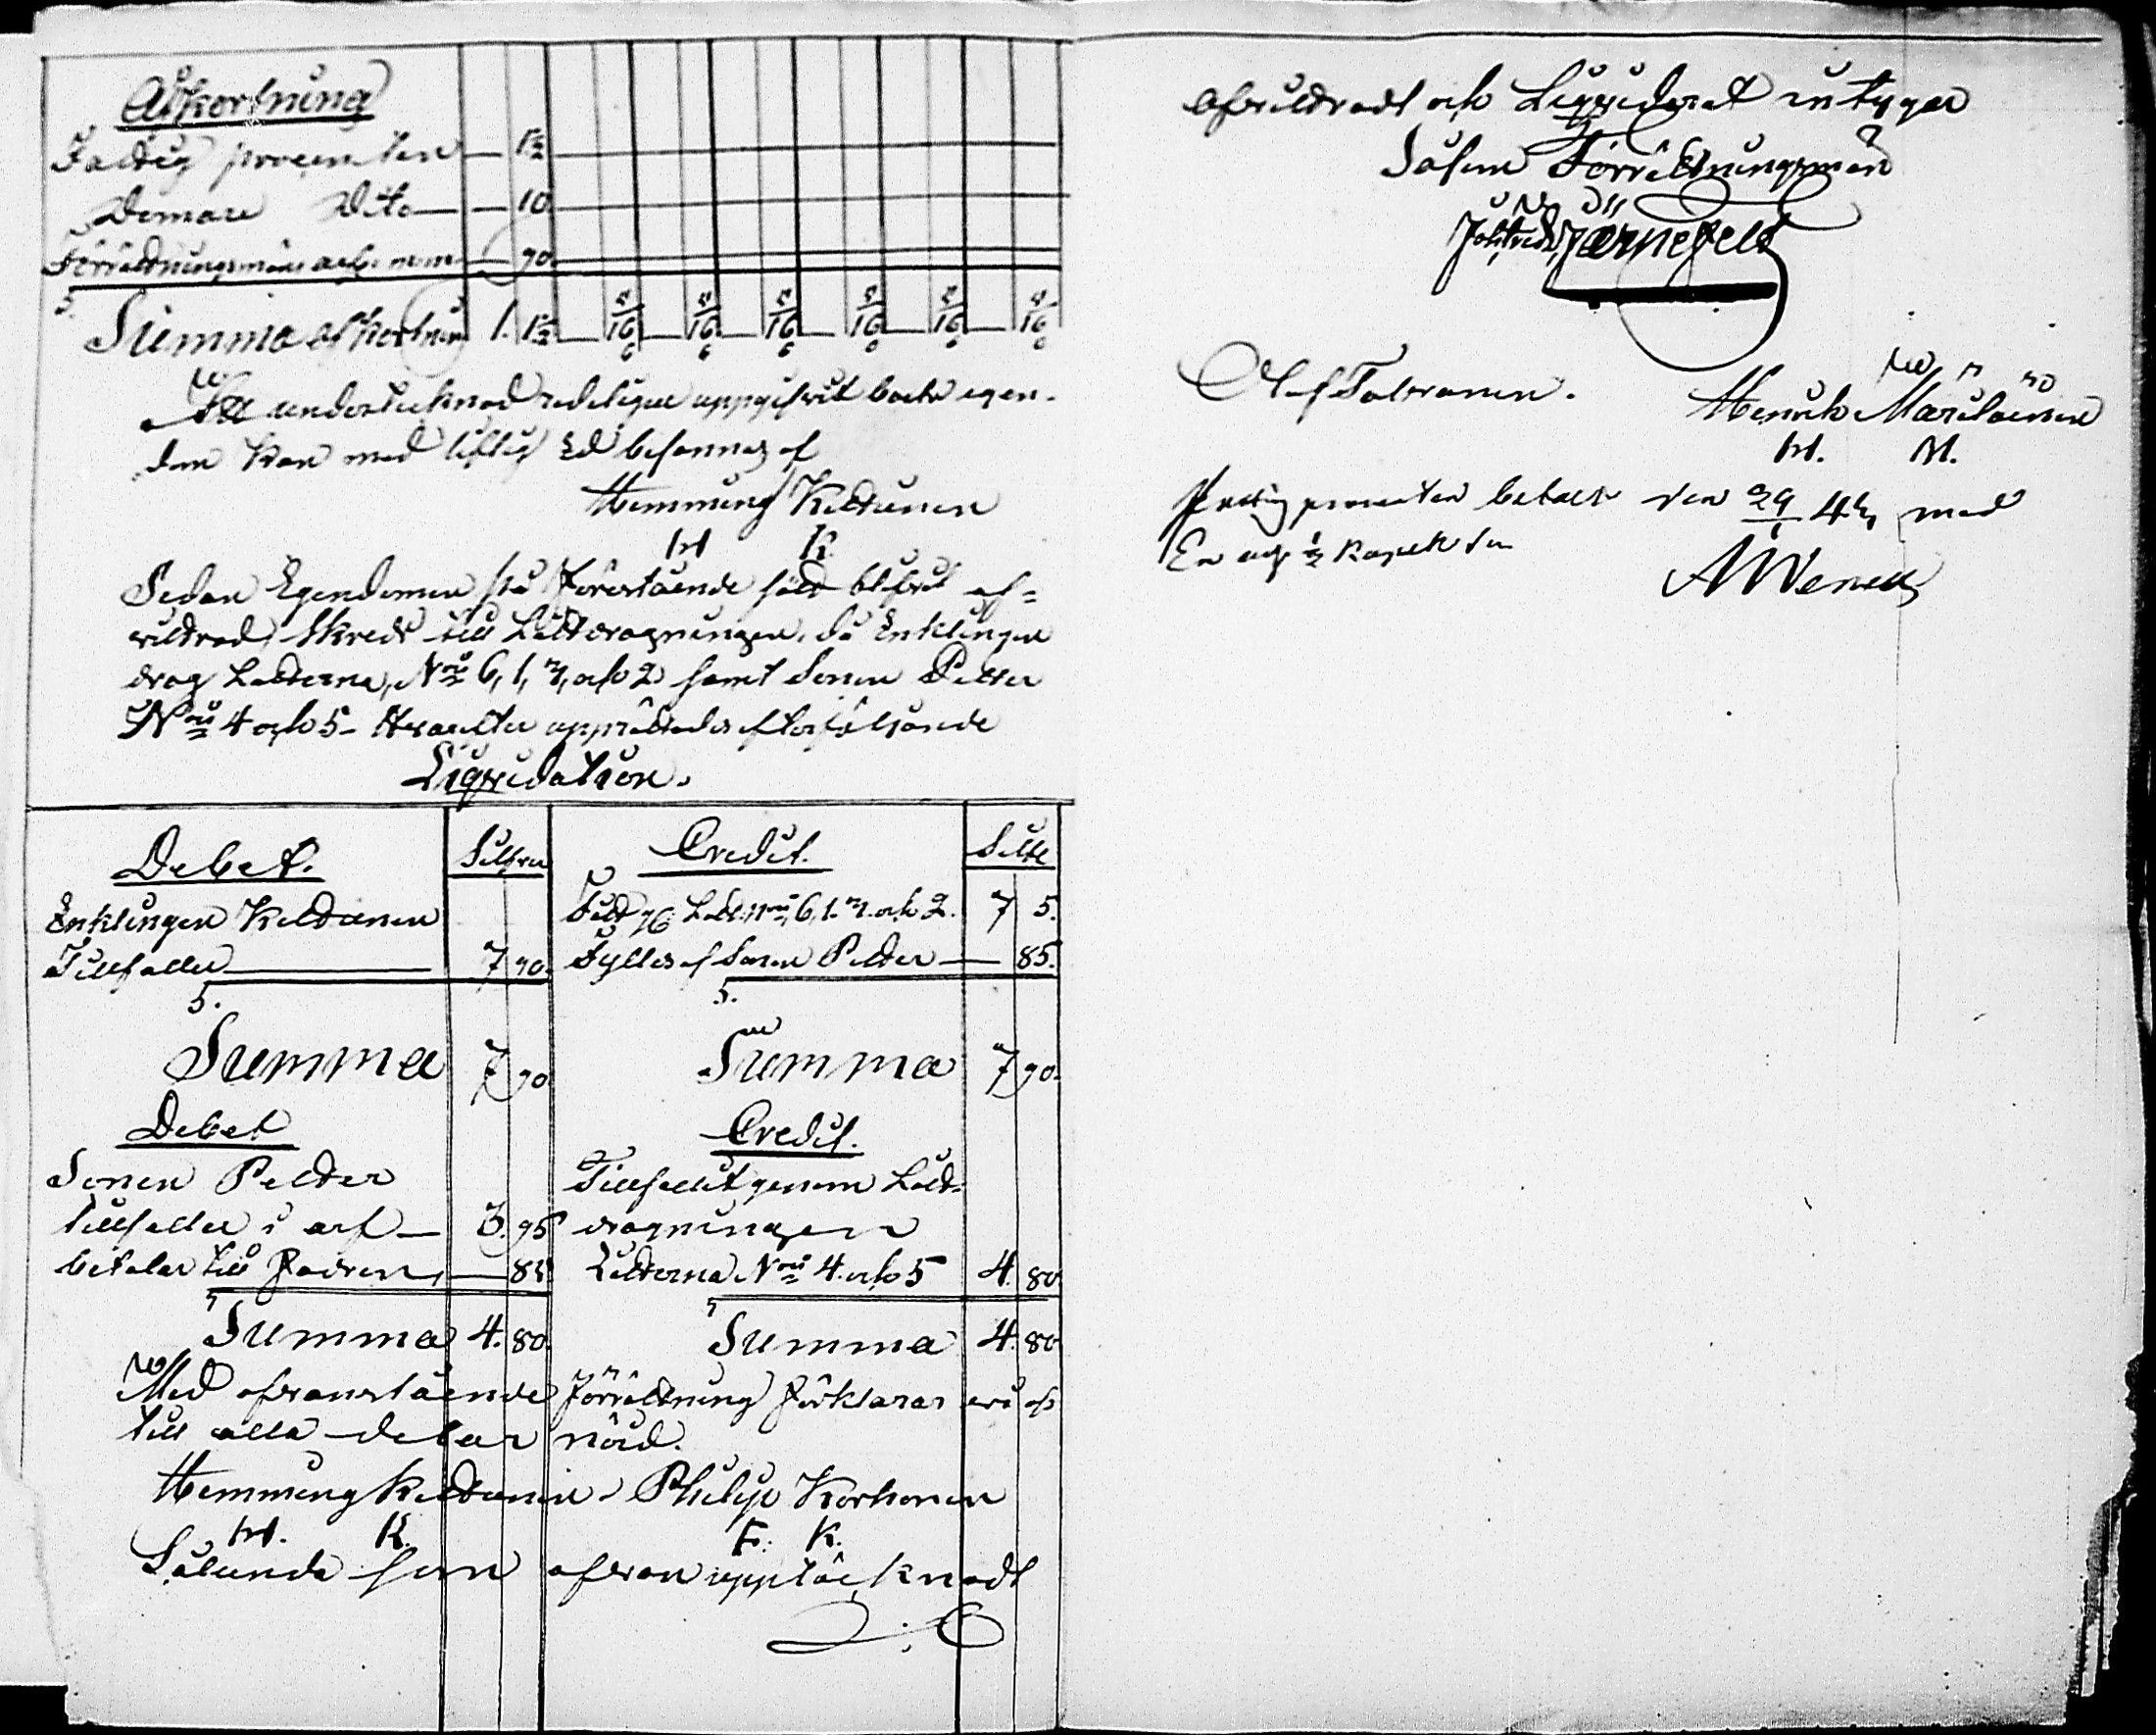 Afkortning
Fattig procenten — 1½
Domare Dito — 10
Förrättningsmäns arfv. m.m. — 90
Summa afkortning 1. 1½
undertecknad redeligen uppgifvit boets egendom kan med liflig Ed besannas af
Hemming Kettunen
H K
Sedan Egendomen på förestående sätt blifvit af=
vittrad, skreds till Lottdragningen, då Enklingen
drog Lotterna, N:is 6, 1, 3, och 2 samt Sonen Petter
N:is 4 och 5 - Hvarefter upprättades efterföljande
Liqvidation.
Debet. Silfver Credit. Silfv
Enklingen Kettunen Lott: N:is 6, 1. 3. och 2. 7 5.
Tillfaller 7 90. Fylles af Sonen Petter — 85.
Summa 7 90 Summa 7 90.
Debet Credit.
Sonen Petter Tillfallit genom Lott-
tillfaller i arf — 3. 95 dragningen
betalar till Fadren, — 85 Lotterna N:is 4. och 5 4. 80
Summa 4. 80. Summa 4. 80
Med ofvanstående förrättning förklarar vi oss
till alla delar nöjd.
Hemming Kettunen Philip Korhonen
H. K. F. K.
Sålunda som ofvan upptäcknadt
afvittradt och Liqviderat intygar
Såsom Förrättningsmän
Joh Fredr Järnefelt
Olof Tolvanen. Henrik Martikainen
H. M.
Fattig procenten betalt den 29/1 44 med
En och ½ Kopek